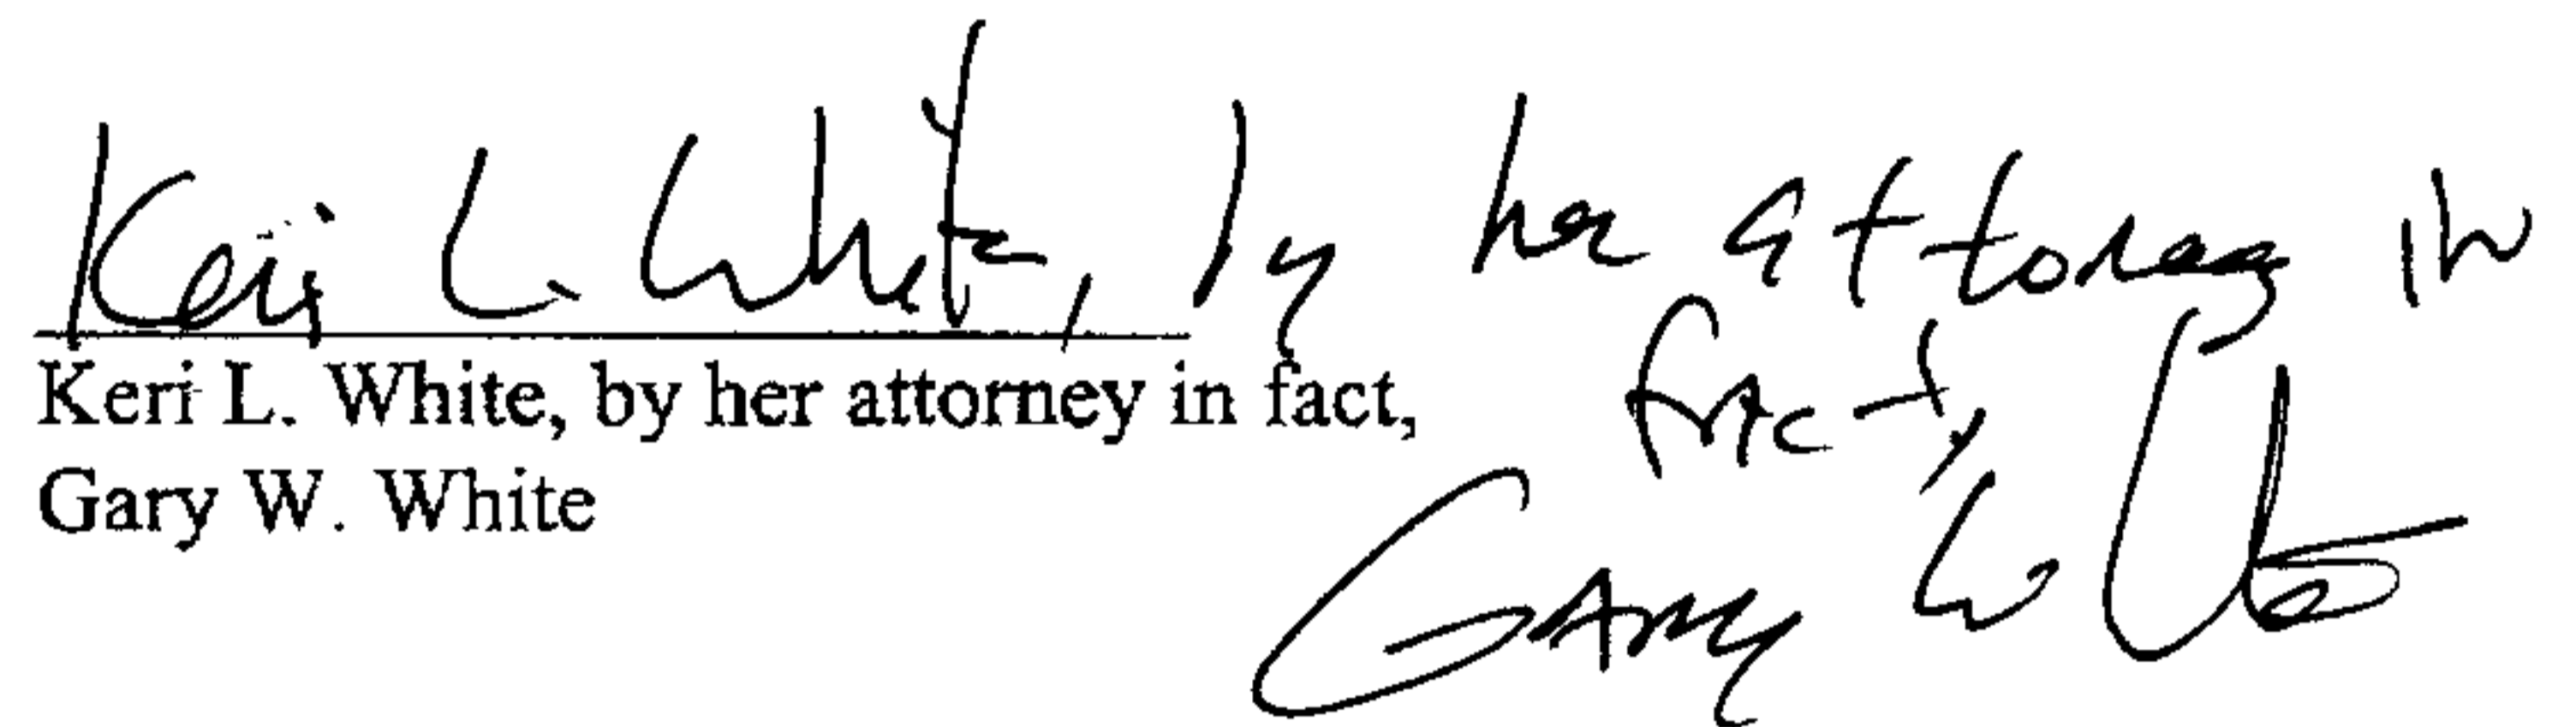 Keri L. White, by her attorney in
fact,
Gary W White
Keri L. White, by her attorney in fact,
Gary W. White